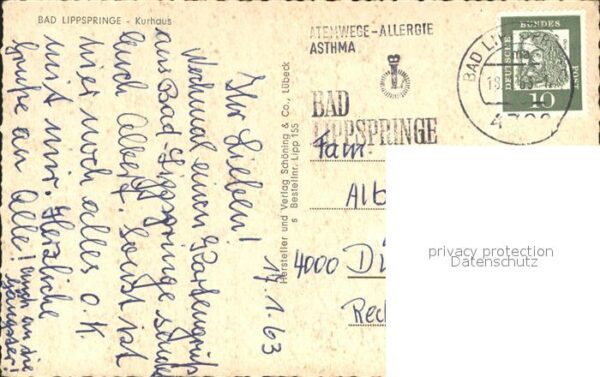 BAD LIPPSPRINGE - Kurhaus
17.1.63
Ihr Lieben!
Nochmal einen Kartengruß
aus Bad-Lippspringe sendet
Euch Albert. Sonst ist
hier noch alles o.K.
mit mir. Herzliche
Grüße an Alle! Auch an die
Hersteller und Verlag Schöning & Co., Lübeck
s Bestellnr. Lipp 155
ATEMWEGE-ALLERGIE
ASTHMA
BAD
LIPPSPRINGE
BAD LIPPSPRINGE
DEUTSCHE BUNDES POST
10
Fam.
Alb
4000 Dü
Rec
privacy protection
Datenschutz